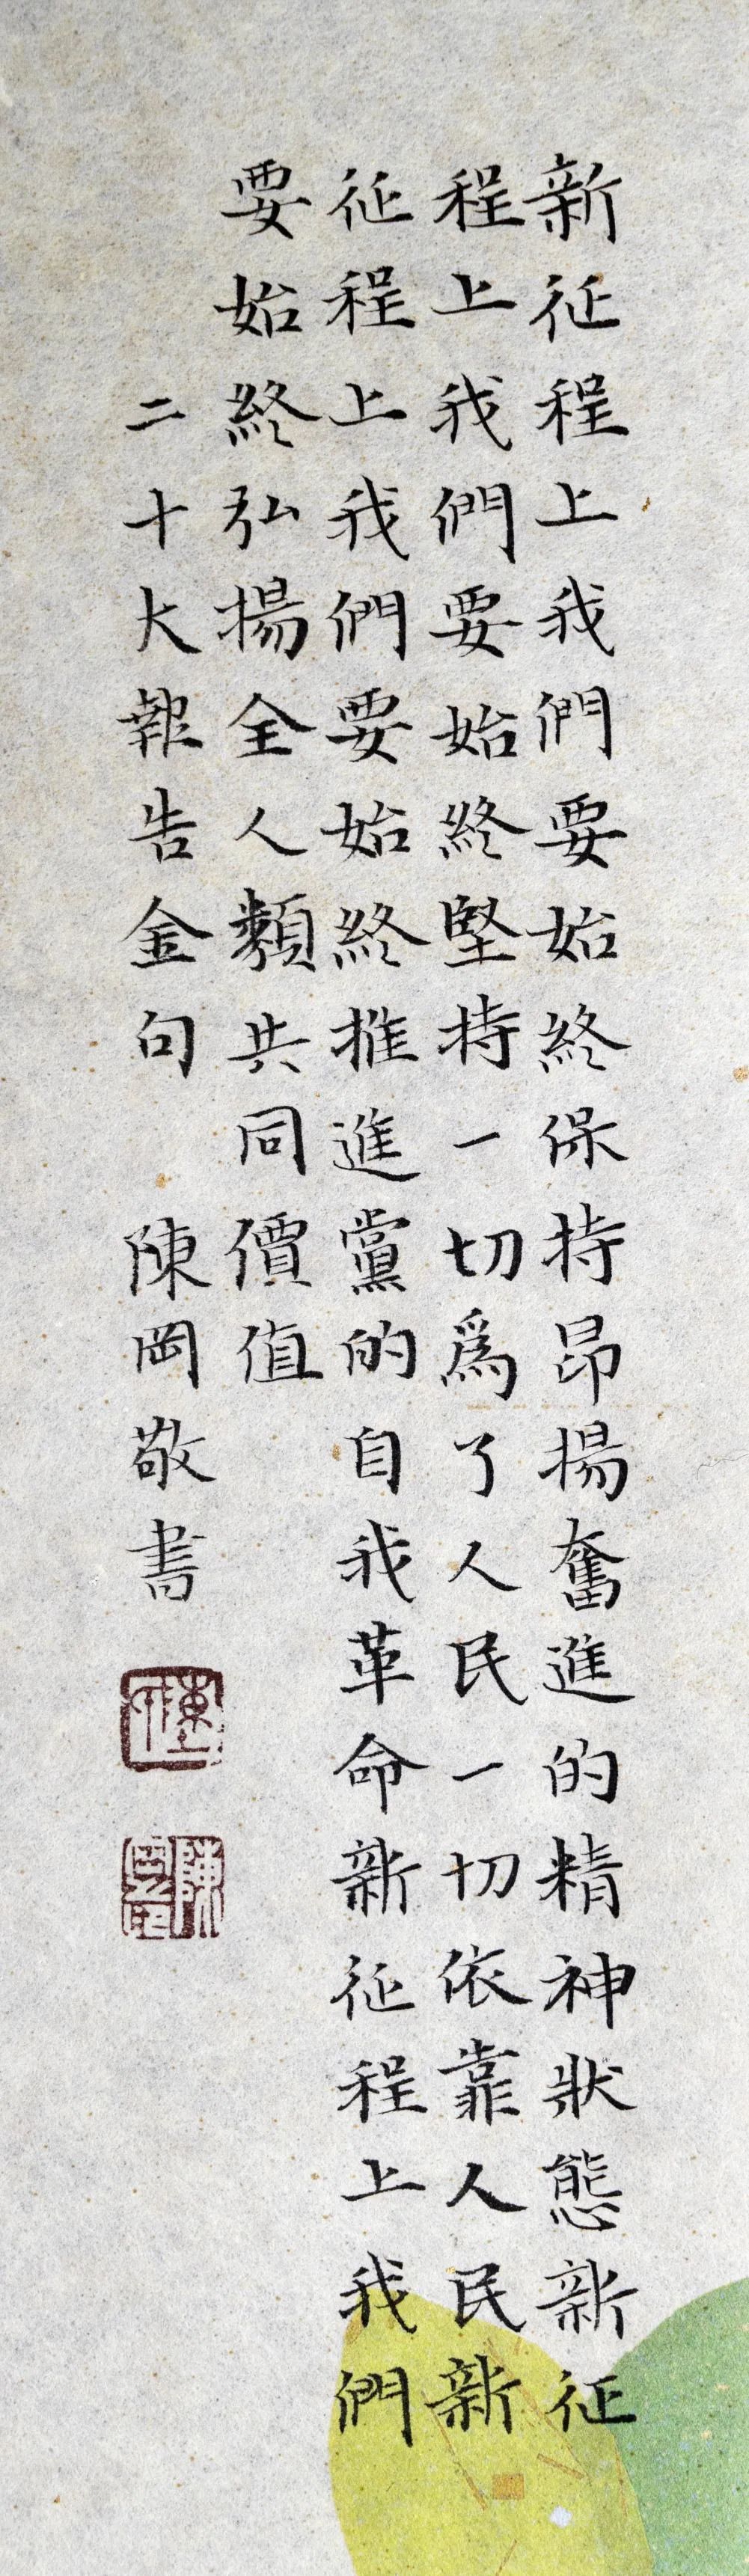 新征程上我們要始終保持昂揚奮進的精神狀態新征
程上我們要始終堅持一切爲了人民一切依靠人民新
征程上我們要始終推進黨的自我革命新征程上我們
要始終弘揚全人類共同價值
二十大報告金句 陳岡敬書